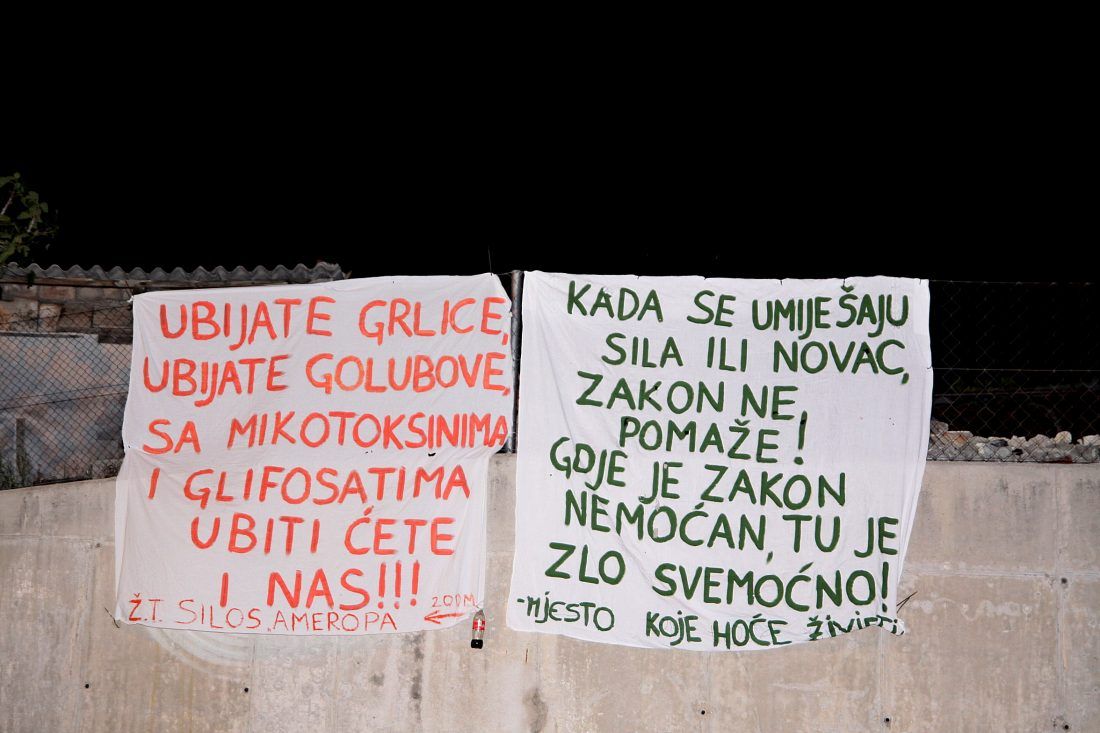 UBIJATE GRLICE,
UBIJATE GOLUBOVE,
SA MIKOTOKSINIMA
I GLIFOSATIMA
UBITI ĆETE
I NAS!!!
Ž.T. SILOS, AMEROPA
200M
KADA SE UMIJEŠAJU
SILA ILI NOVAC,
ZAKON NE,
POMAŽE!
GDJE JE ZAKON
NEMOĆAN, TU JE
ZLO SVEMOĆNO!
-MJESTO KOJE HOĆE ŽIVJETI